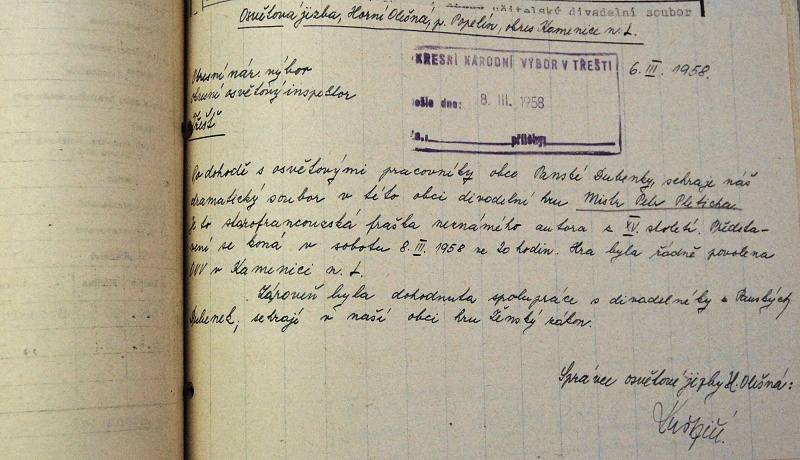 učitelský divadelní soubor
Osvětová jizba, Horní Olešná, p. Popelín, okres Kamenice n. L.
KRESNÍ NÁRODNÍ VÝBOR V TŘEŠTI
6. III. 1958.
Okresní nár. výbor
okresní osvětový inspektor
ošlo dne: 8. III. 1958
Třešť
přílohy:
Po dohodě s osvětovými pracovníky obce Panské Dubenky, sehraje náš
dramatický soubor v této obci divadelní hru Mistr Petr Pleticha.
Je to starofrancouzská fraška neznámého autora z XV. století. Předsta-
vení se koná v sobotu 8. III. 1958 ve 20 hodin. Hra byla řádně povolena
ONV v Kamenici n. L.
Zároveň byla dohodnuta spolupráce s divadelníky z Panských
Dubenek, sehrají v naší obci hru Ženský zákon.
Správce osvětové jizby H. Olešná: